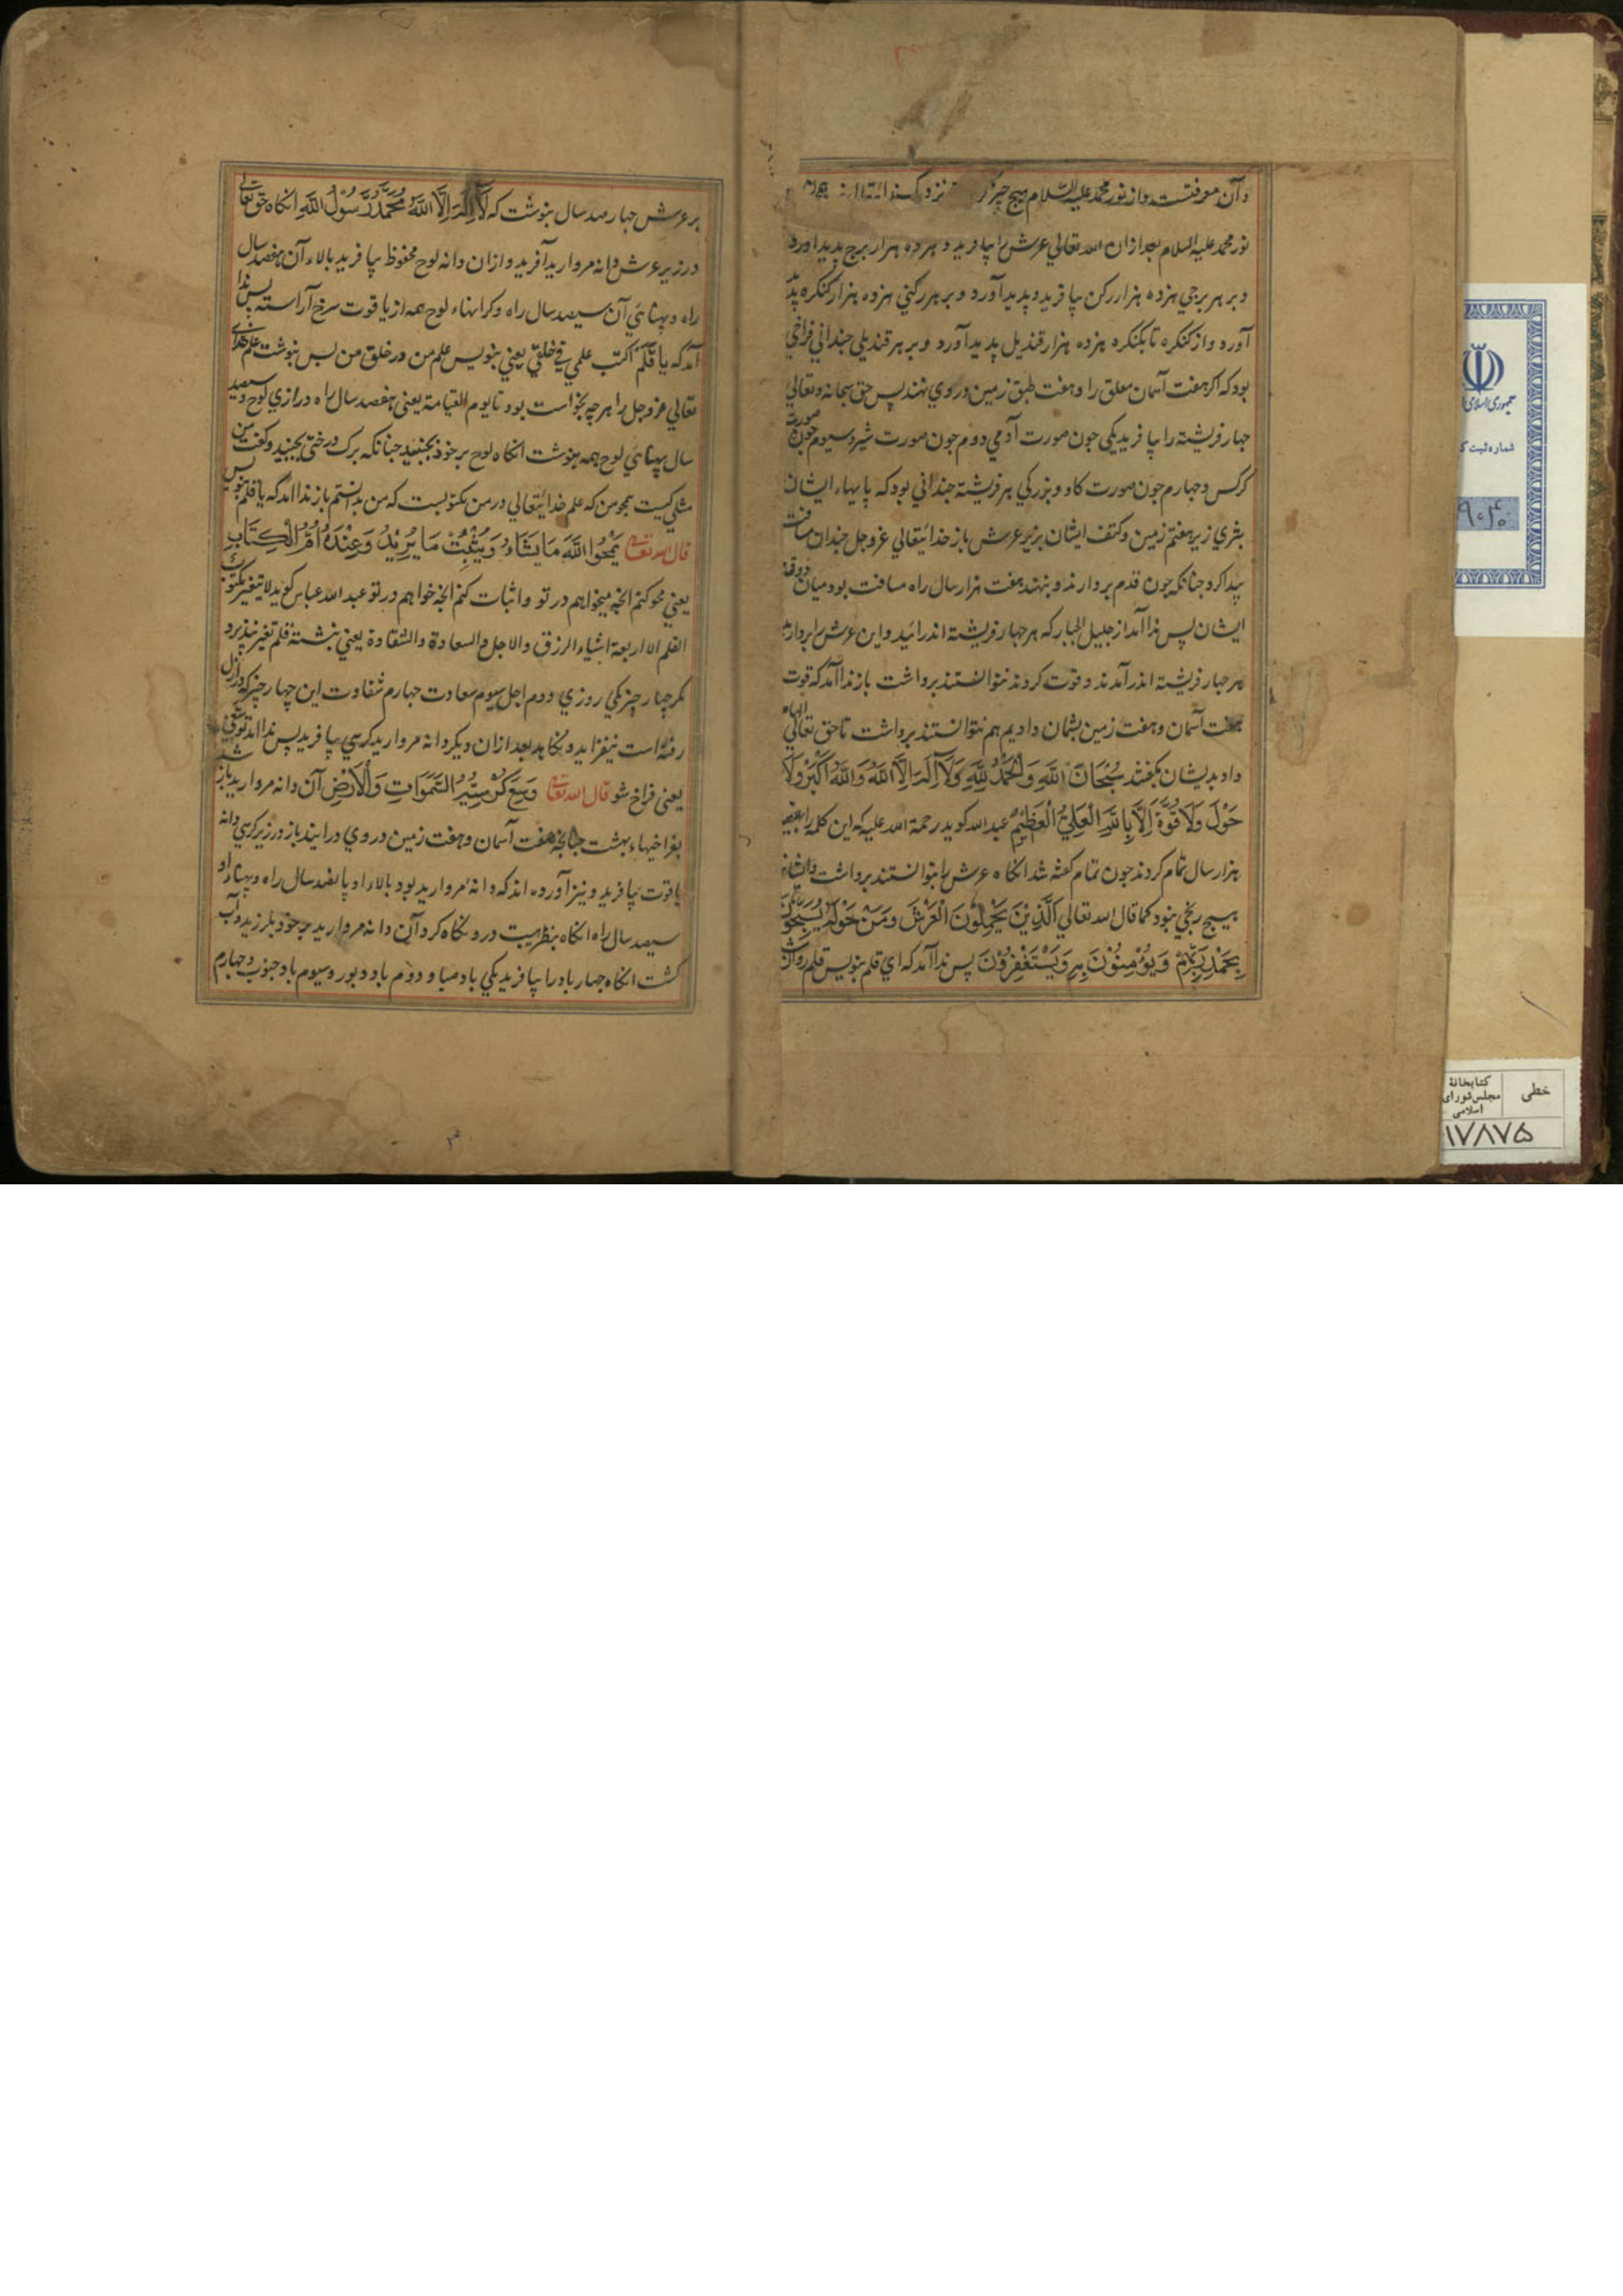 وآن معرفتست واز نور محمد عليه السّلام هيچ چيز نزد
نور محمد عليه السلام بعد ازان الله تعالي عرش را بيافريد و هژده هزار برج پديد اورد
و بر هر برجي هژده هزار ركن بيافريد و پديد آورد و بر هر ركني هژده هزار كنكره پديد
آورد و از كنكره تا بكنكره هژده هزار قنديل پديد آورد و بر هر قنديلي چنداني فراخي
بود كه اكر هفت آسمان معلق را و هفت طبق زمين در وي نهند پس حق سبحانه وتعالي
جهار فريشته را بيافريد يكي جون صورت آدمي دوم جون صورت شير وسيوم جون صورت
كركس و جهارم جون صورت كاو و بزركي هر فريشته چنداني بود كه پايهاء ايشان
بثري زير هفتم زمين و كتف ايشان بزير عرش باز خدايتعالي عزوجل جندان مسافت
پيدا كرد جنانكه جون قدم بردارند و بنهند هفت هزار سال راه مسافت بود ميان دو قدم
ايشان پس ندا آمد از جليل الجبار كه هر جهار فريشته اندرائيد و اين عرش را برداريد
هر جهار فريشته اندر آمدند و قوت كردند نتوانستند برداشت باز ندا آمد كه قوت
هفت آسمان و هفت زمين بشمان داديم هم نتوانستند برداشت تا حق تعالي الهام
داد بديشان بكفتند سُبْحَانَ اللَّهِ وَالْحَمْدُ لِلَّهِ وَلَا اِلَهَ اِلَّا اللَّهُ وَاللَّهُ اَكْبَرُ وَلَا
حَوْلَ وَلَا قُوَّةَ اِلَّا بِاللَّهِ الْعَلِيِّ الْعَظِيْمِ عبد الله كويد رحمة الله عليه كه اين كلمه را
هزار سال تمام كردند جون تمام كفته شد انكاه عرش را بتوانستند برداشت وايشانرا
هيچ رنجي نبود كما قال الله تعالي اَلَّذِيْنَ يَحْمِلُوْنَ الْعَرْشَ وَمَنْ حَوْلَهُ يُسَبِّحُوْنَ
بِحَمْدِ رَبِّهِمْ وَيُؤْمِنُوْنَ بِهِ وَيَسْتَغْفِرُوْنَ پس ندا آمد كه اي قلم بنويس قلم روان
بر عرش جهار صد سال بنوشت كه لَا اِلَهَ اِلَّا اللَّهُ مُحَمَّدٌ رَسُوْلُ اللَّهِ انكاه حق تعالي
در زير عرش دانه مرواريد آفريد و ازان دانه لوح محفوظ بيافريد بالاء آن هفصد سال
راه و پهنائي آن سيصد سال راه و كرانهاء لوح همه از ياقوت سرخ آراسته پس ندا
آمد كه يا قلم اكتب علمي في خلقي يعني بنويس علم من در خلق من پس بنوشت علم خداي
تعالي عزوجل را هر چه بخواست بود تا يوم القيامة يعني هفصد سال راه درازي لوح و سيصد
سال پهنائي لوح همه بنوشت انكاه لوح بر خود بجنبيد جنانكه برك درختي بجنبيد و كفت من
مثلي كيست همچو من كه علم خدايتعالي در من مكتوبست كه من بدانستم باز ندا امد كه يا قلم بنويس
قال الله تعالى يَمْحُوا اللَّهُ مَا يَشَاءُ وَيُثْبِتُ مَا يُرِيْدُ وَعِنْدَهُ اُمُّ الْكِتَابِ
يعني محو كنم انچه ميخواهم در تو و اثبات كنم انچه خواهم در تو عبد الله عباس كويد لا يتغير مكتوب
القلم الا اربعة اشياء الرزق والاجل والسعادة والشقاوة يعني نبشته قلم تغير نپذيرد
مكر چهار چيز يكي روزي و دوم اجل سيوم سعادت جهارم شقاوت اين چهار چيز كه در ازل
رفته است نيفزايد و نكاهد بعد ازان ديكر دانه مرواريد كرسي بيافريد پس ندا امد
يعني فراخ شو قال الله تعالى وَسِعَ كُرْسِيُّهُ السَّمَوَاتِ وَالْاَرْضَ آن دانه مرواريد باز
بفراخيهاء بهشت جنانچه هفت آسمان و هفت زمين در وي درايند باز در زير كرسي دانه
ياقوت بيافريد و نيز آورده اند كه دانه مرواريد بود بالاء او پانصد سال راه و پهناء او
سيصد سال راه انكاه بنظر هيبت درو نكاه كرد آن دانه مرواريد بر خود بلرزيد و آب
كشت انكاه جهار باد را بيافريد يكي باد صبا و دوم باد دبور و سيوم باد جنوب و جهارم
۲
شماره ثبت ك
۹۰۴۰
خطی
كتابخانهٔ مجلس شورای اسلامی
۱۷۸۷۵